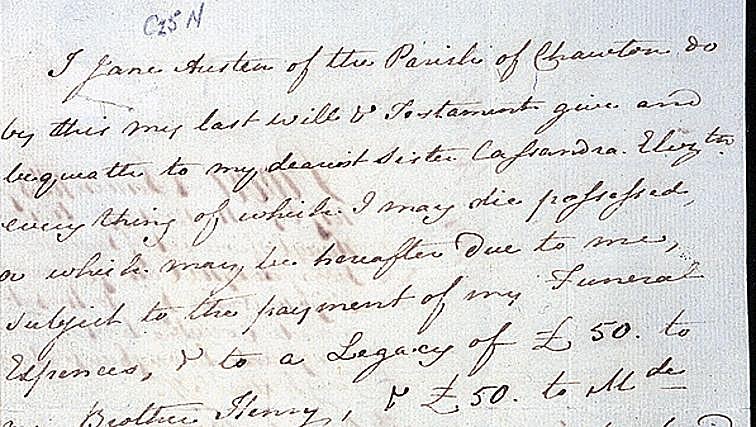 I Jane Austen of the Parish of Chawton do
by this my last will & Testament give and
bequeathe to my dearest Sister Cassandra Elizth
every thing of which I may die possessed,
or which may be hereafter due to me,
subject to the payment of my Funeral
Expences, & to a Legacy of £50. to
my Brother Henry, & £50. to Mde